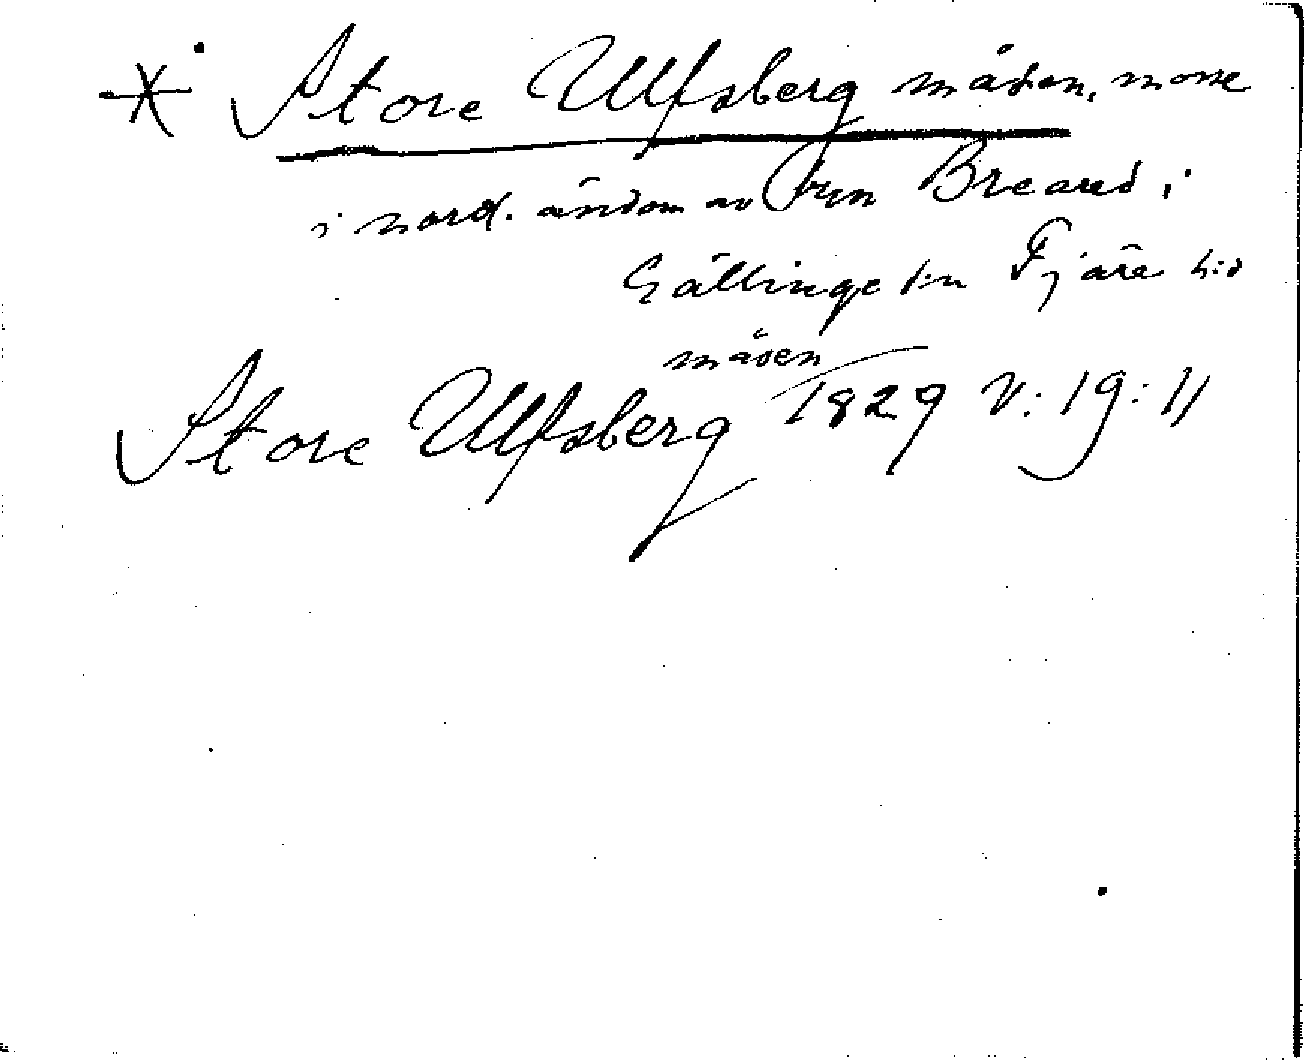 * Store Ulfsberg måsen, mosse
i nord. ändom av Byn Breared i
Gällinge sn Fjäre hd
måsen
Store Ulfsberg 1829 V:19:11